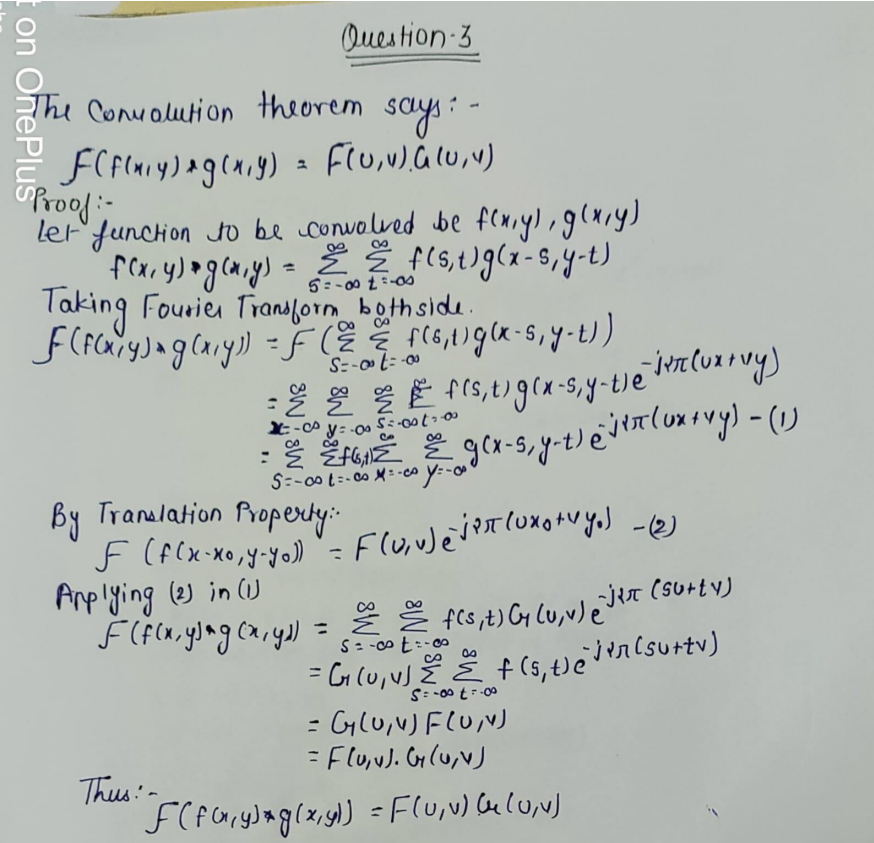 t on OnePlus
Question-3
The Convolution theorem says:-
F(f(x,y)*g(x,y) = F(u,v).G(u,v)
Proof:-
Let function to be convolved be f(x,y), g(x,y)
f(x,y)*g(x,y) = ∞∑s=-∞ ∞∑t=-∞ f(s,t)g(x-s,y-t)
Taking Fourier Transform bothside.
F(f(x,y)*g(x,y)) = F(∞∑s=-∞ ∞∑t=-∞ f(s,t)g(x-s,y-t))
= ∞∑x=-∞ ∞∑y=-∞ ∞∑s=-∞ ∞∑t=-∞ f(s,t)g(x-s,y-t)e^-j2π(ux+vy)
= ∞∑s=-∞ ∞∑t=-∞ f(s,t) ∞∑x=-∞ ∞∑y=-∞ g(x-s,y-t)e^-j2π(ux+vy) -(1)
By Translation Property:-
F(f(x-x₀,y-y₀)) = F(u,v)e^-j2π(ux₀+vy₀) -(2)
Applying (2) in (1)
F(f(x,y)*g(x,y)) = ∞∑s=-∞ ∞∑t=-∞ f(s,t)G(u,v)e^-j2π(su+tv)
= G(u,v) ∞∑s=-∞ ∞∑t=-∞ f(s,t)e^-j2π(su+tv)
= G(u,v)F(u,v)
= F(u,v).G(u,v)
Thus:-
F(f(x,y)*g(x,y)) = F(u,v)G(u,v)